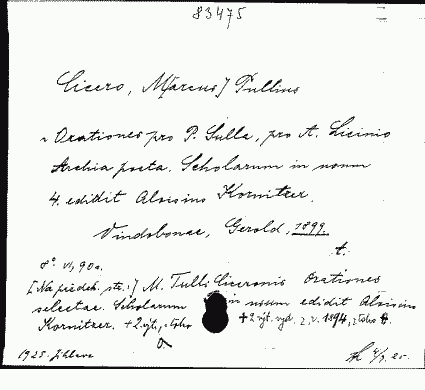 83475
Cicero, M[arcus] Tullius
Orationes pro P. Sulla, pro A. Licinio
Archia poeta. Scholarum in usum
4. edidit Aloisius Kornitzer.
Vindobonae, Gerold, 1899.
t.
8° VI, 90 s.
[Na předch. str.:] M. Tulli Ciceronis Orationes
selectae. Scholarum in usum edidit Aloisius
Kornitzer. + 2. výt., toho
+ 2 výt. vyd. 2. z r. 1894, toho
1925. Jihlava